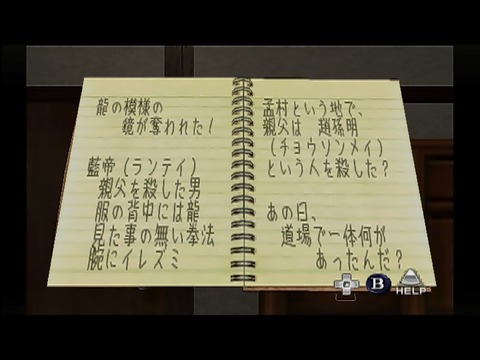 龍の模様の
鏡が奪われた！
藍帝（ランテイ）
親父を殺した男
服の背中には龍
見た事の無い拳法
腕にイレズミ
孟村という地で、
親父は　趙孫明
（チョウソンメイ）
という人を殺した？
あの日、
道場で一体何が
あったんだ？
B
HELP